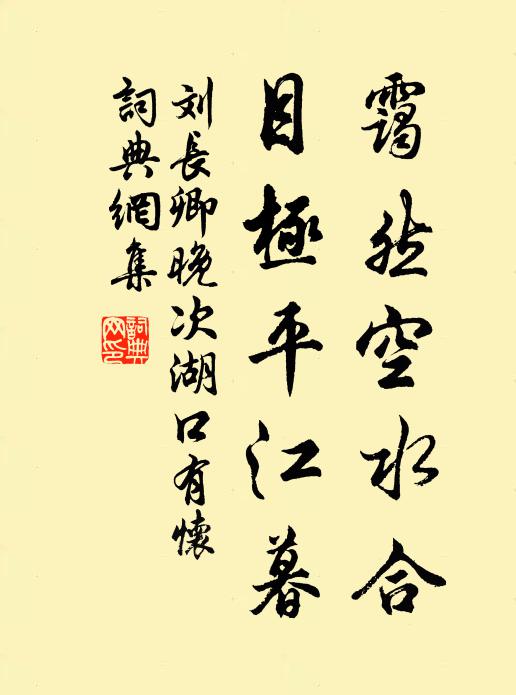 霭然空水合
目極平江暮
刘長卿晚次湖口有懷
詞典網集
詞典网印